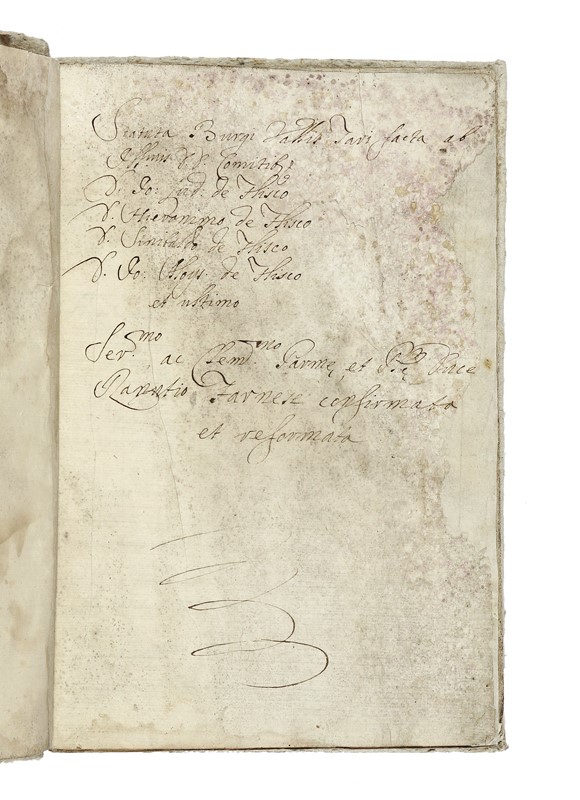 Statuta Burgi Vallis Tari facta ab
Illmis D.D. Comitib9
D. Io: Lud. de Flisco
D. Hieronimo de Flisco
D. Sinibaldo de Flisco
D. Io: Aloys. de Flisco
et ultimo
Ser.mo ac Clem.mo Parmę et Plę Duce
Ranutio Farnese confirmata
et reformata